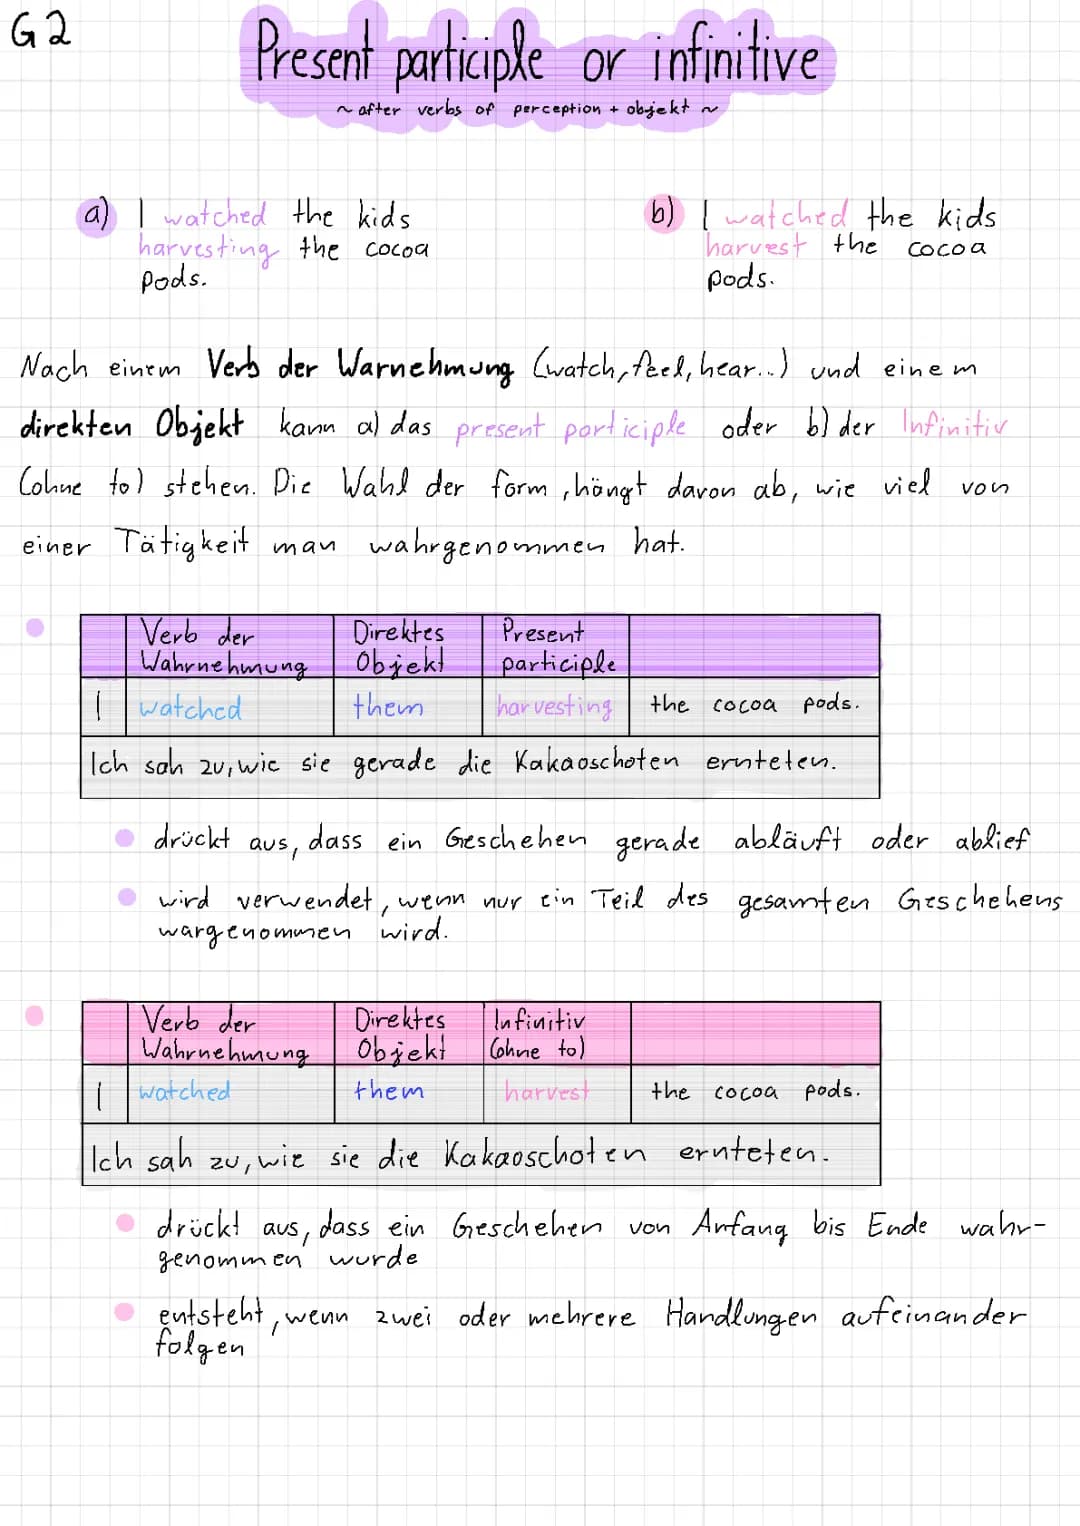 G2
Present participle or infinitive
~ after verbs of perception + objekt ~
a) I watched the kids
harvesting the cocoa
pods.
b) I watched the kids
harvest the cocoa
pods.
Nach einem Verb der Warnehmung (watch, feel, hear...) und einem
direkten Objekt kann a) das present participle oder b) der Infinitiv
(ohne to) stehen. Die Wahl der form, hängt davon ab, wie viel von
einer Tätigkeit man wahrgenommen hat.
Verb der Wahrnehmung Direktes Objekt Present participle
I watched them harvesting the cocoa pods.
Ich sah zu, wie sie gerade die Kakaoschoten ernteten.
drückt aus, dass ein Geschehen gerade abläuft oder ablief
wird verwendet, wenn nur ein Teil des gesamten Geschehens
wargenommen wird.
Verb der Wahrnehmung Direktes Objekt Infinitiv (ohne to)
I watched them harvest the cocoa pods.
Ich sah zu, wie sie die Kakaoschoten ernteten.
drückt aus, dass ein Geschehen von Anfang bis Ende wahr-
genommen wurde
entsteht, wenn zwei oder mehrere Handlungen aufeinander
folgen